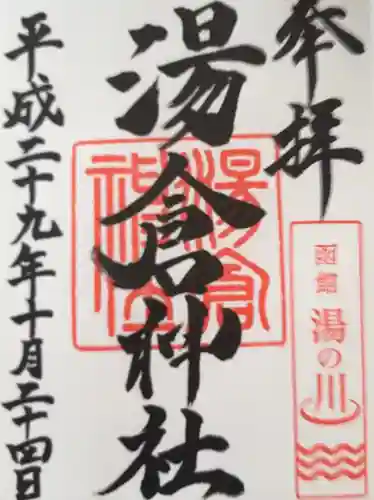 奉拝
函館
湯の川
湯倉神社
湯倉神社
平成二十九年十月二十四日